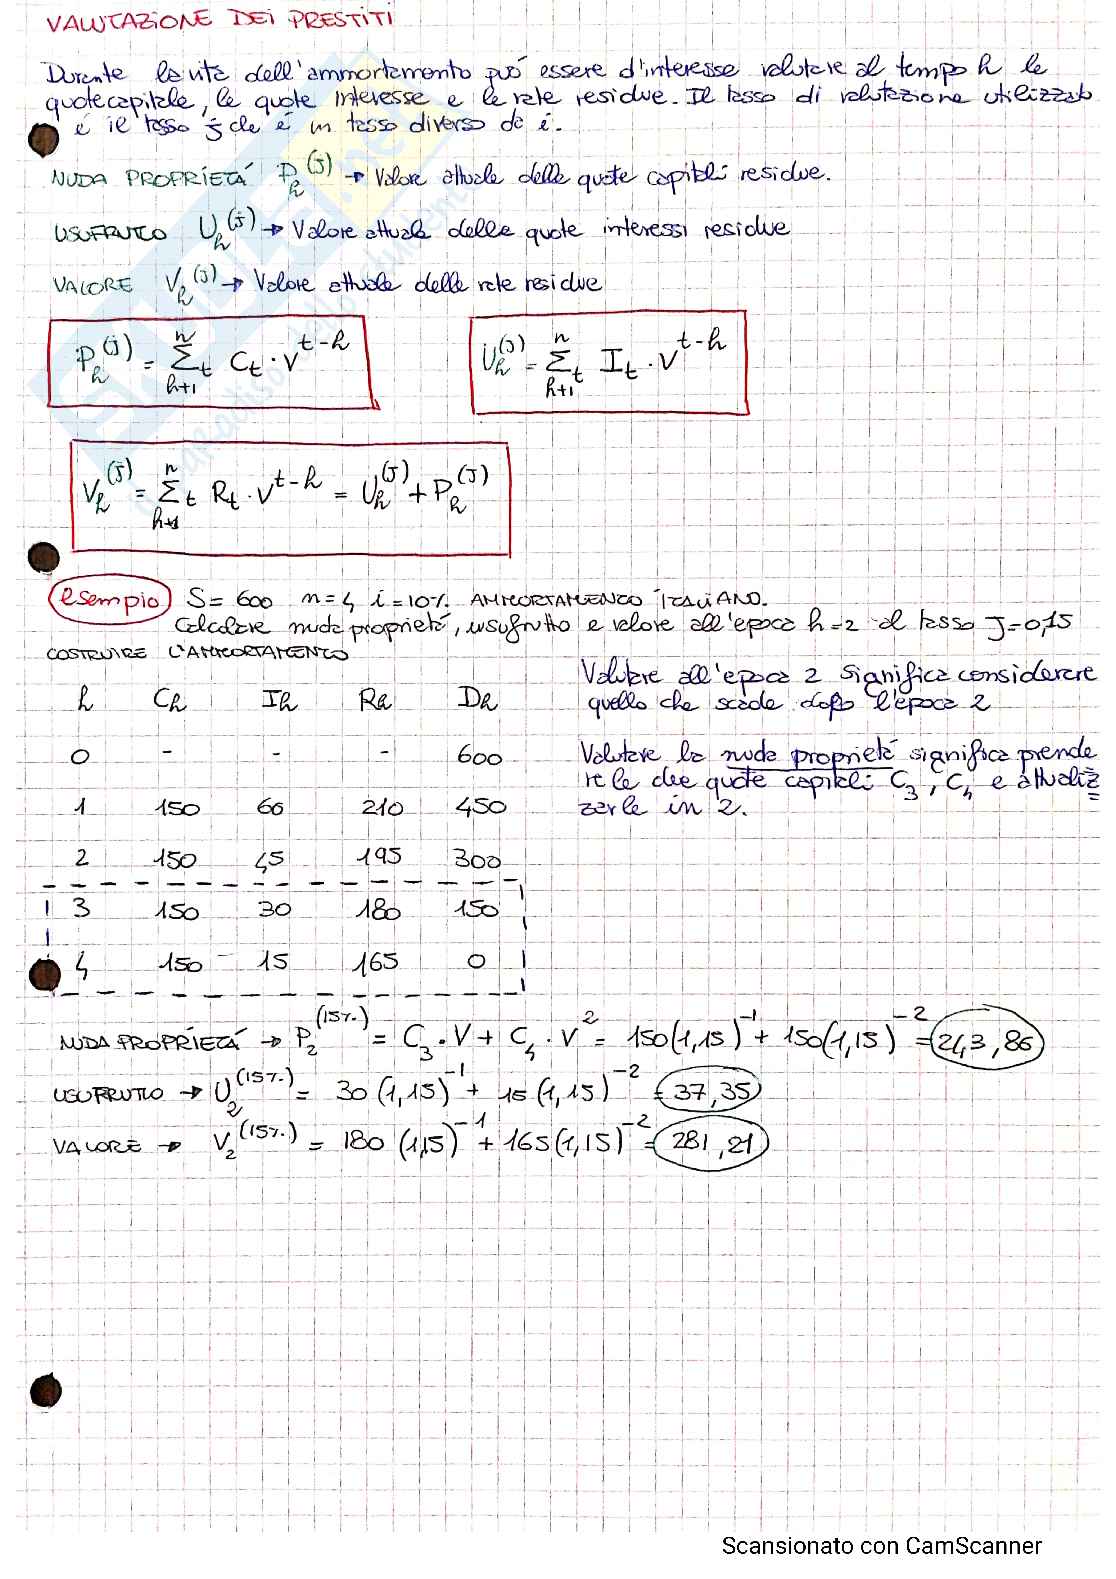 VALUTAZIONE DEI PRESTITI
Durante la vita dell'ammortamento può essere d'interesse valutare al tempo h le
quote capitale, le quote interesse e le rate residue. Il tasso di valutazione utilizzato
é il tasso j che é un tasso diverso da i.
NUDA PROPRIETÁ P_h^(j) → Valore attuale delle quote capitali residue.
USUFRUTTO U_h^(j) → Valore attuale delle quote interessi residue
VALORE V_h^(j) → Valore attuale delle rate residue
P_h^(j) = Σ_t^n_{h+1} C_t · v^{t-h} U_h^(j) = Σ_t^n_{h+1} I_t · v^{t-h}
V_h^(j) = Σ_t^n_{h+1} R_t · v^{t-h} = U_h^(j) + P_h^(j)
esempio S= 600 n=4 i=10% AMMORTAMENTO ITALIANO.
Calcolare nuda proprietá, usufrutto e valore all'epoca h=2 al tasso J=0,15
COSTRUIRE L'AMMORTAMENTO
h Ch Ih Rh Dh
0 - - - 600
1 150 60 210 450
2 150 45 195 300
3 150 30 180 150
4 150 15 165 0
Valutare all'epoca 2 significa considerare
quello che scade dopo l'epoca 2
Valutare la nuda proprietá significa prende
re le due quote capitali C_3, C_4 e attualiz
zarle in 2.
NUDA PROPRIETÁ → P_2^(15%) = C_3 · V + C_4 · V^2 = 150(1,15)^-1 + 150(1,15)^-2 = 243,86
USUFRUTTO → U_2^(15%) = 30(1,15)^-1 + 15(1,15)^-2 = 37,35
VALORE → V_2^(15%) = 180(1,15)^-1 + 165(1,15)^-2 = 281,21
Scansionato con CamScanner